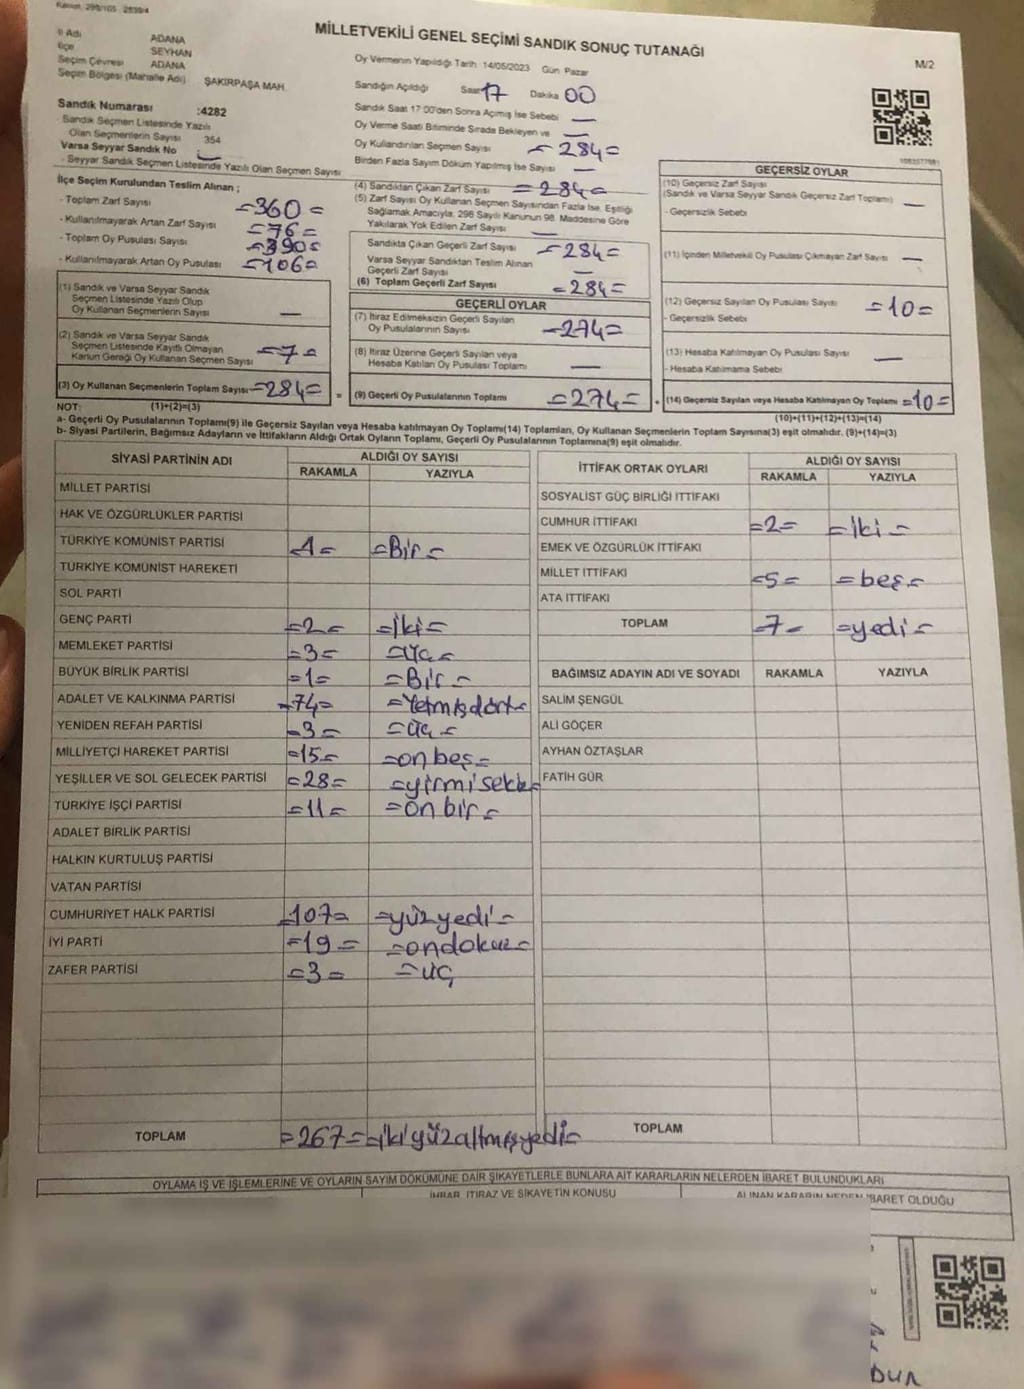 Kanun: 298/105 - 2839/4
MİLLETVEKİLİ GENEL SEÇİMİ SANDIK SONUÇ TUTANAĞI
M/2
İl Adı ADANA
İlçe SEYHAN
Seçim Çevresi ADANA
Seçim Bölgesi (Mahalle Adı) ŞAKIRPAŞA MAH.
Sandık Numarası :4282
Sandık Seçmen Listesinde Yazılı
Olan Seçmenlerin Sayısı 354
Varsa Seyyar Sandık No -
- Seyyar Sandık Seçmen Listesinde Yazılı Olan Seçmen Sayısı
Oy Vermenin Yapıldığı Tarih :14/05/2023 Gün Pazar
Sandığın Açıldığı Saat 17 Dakika 00
Sandık Saat 17:00'den Sonra Açımış İse Sebebi —
Oy Verme Saati Bitiminde Sırada Bekleyen ve —
Oy Kullandırılan Seçmen Sayısı =284=
Birden Fazla Sayım Döküm Yapılmış İse Sayısı —
İlçe Seçim Kurulundan Teslim Alınan ;
- Toplam Zarf Sayısı =360=
- Kullanılmayarak Artan Zarf Sayısı =76=
- Toplam Oy Pusulası Sayısı =390=
- Kullanılmayarak Artan Oy Pusulası =106=
(1) Sandık ve Varsa Seyyar Sandık
Seçmen Listesinde Yazılı Olup
Oy Kullanan Seçmenlerin Sayısı —
(2) Sandık ve Varsa Seyyar Sandık
Seçmen Listesinde Kayıtlı Olmayan
Kanun Gereği Oy Kullanan Seçmen Sayısı =7=
(3) Oy Kullanan Seçmenlerin Toplam Sayısı =284= =
(4) Sandıktan Çıkan Zarf Sayısı =284=
(5) Zarf Sayısı Oy Kullanan Seçmen Sayısından Fazla İse, Eşitliği
Sağlamak Amacıyla, 298 Sayılı Kanunun 98. Maddesine Göre
Yakılarak Yok Edilen Zarf Sayısı —
Sandıkta Çıkan Geçerli Zarf Sayısı =284=
Varsa Seyyar Sandıktan Teslim Alınan
Geçerli Zarf Sayısı —
(6) Toplam Geçerli Zarf Sayısı =284=
GEÇERLİ OYLAR
(7) İtiraz Edilmeksizin Geçerli Sayılan
Oy Pusulalarının Sayısı =274=
(8) İtiraz Üzerine Geçerli Sayılan veya
Hesaba Katılan Oy Pusulası Toplamı —
(9) Geçerli Oy Pusulalarının Toplamı =274= +
GEÇERSİZ OYLAR
(10) Geçersiz Zarf Sayısı
(Sandık ve Varsa Seyyar Sandık Geçersiz Zarf Toplamı) —
- Geçersizlik Sebebi
(11) İçinden Milletvekili Oy Pusulası Çıkmayan Zarf Sayısı —
(12) Geçersiz Sayılan Oy Pusulası Sayısı =10=
- Geçersizlik Sebebi
(13) Hesaba Katılmayan Oy Pusulası Sayısı —
- Hesaba Katılmama Sebebi
(14) Geçersiz Sayılan veya Hesaba Katılmayan Oy Toplamı =10=
NOT: (1)+(2)=(3) (10)+(11)+(12)+(13)=(14)
a- Geçerli Oy Pusulalarının Toplamı(9) ile Geçersiz Sayılan veya Hesaba katılmayan Oy Toplamı(14) Toplamları, Oy Kullanan Seçmenlerin Toplam Sayısına(3) eşit olmalıdır. (9)+(14)=(3)
b- Siyasi Partilerin, Bağımsız Adayların ve İttifakların Aldığı Ortak Oyların Toplamı, Geçerli Oy Pusulalarının Toplamına(9) eşit olmalıdır.
SİYASİ PARTİNİN ADI ALDIĞI OY SAYISI
RAKAMLA YAZIYLA
MİLLET PARTİSİ
HAK VE ÖZGÜRLÜKLER PARTİSİ
TÜRKİYE KOMÜNİST PARTİSİ 1= =Bir=
TÜRKİYE KOMÜNİST HAREKETİ
SOL PARTİ
GENÇ PARTİ =2= =iki=
MEMLEKET PARTİSİ =3= =üç=
BÜYÜK BİRLİK PARTİSİ =1= =Bir=
ADALET VE KALKINMA PARTİSİ =74= =Yetmişdört=
YENİDEN REFAH PARTİSİ =3= =üç=
MİLLİYETÇİ HAREKET PARTİSİ =15= =on beş=
YEŞİLLER VE SOL GELECEK PARTİSİ =28=
TÜRKİYE İŞÇİ PARTİSİ =11= =on bir=
ADALET BİRLİK PARTİSİ
HALKIN KURTULUŞ PARTİSİ
VATAN PARTİSİ
CUMHURİYET HALK PARTİSİ 107= =yüzyedi=
İYİ PARTİ =19= =ondokuz=
ZAFER PARTİSİ =3= =üç
TOPLAM =267= =ikiyüzaltmışyedi=
İTTİFAK ORTAK OYLARI ALDIĞI OY SAYISI
RAKAMLA YAZIYLA
SOSYALİST GÜÇ BİRLİĞİ İTTİFAKI
CUMHUR İTTİFAKI =2= =iki=
EMEK VE ÖZGÜRLÜK İTTİFAKI
MİLLET İTTİFAKI =5= =beş=
ATA İTTİFAKI
TOPLAM =7= =yedi=
BAĞIMSIZ ADAYIN ADI VE SOYADI RAKAMLA YAZIYLA
SALİM ŞENGÜL
ALİ GÖÇER
AYHAN ÖZTAŞLAR
FATİH GÜR
TOPLAM
OYLAMA İŞ VE İŞLEMLERİNE VE OYLARIN SAYIM DÖKÜMÜNE DAİR ŞİKAYETLERLE BUNLARA AİT KARARLARIN NELERDEN İBARET BULUNDUKLARI
İHBAR, İTİRAZ VE ŞİKAYETİN KONUSU ALINAN KARARIN NEDEN İBARET OLDUĞU